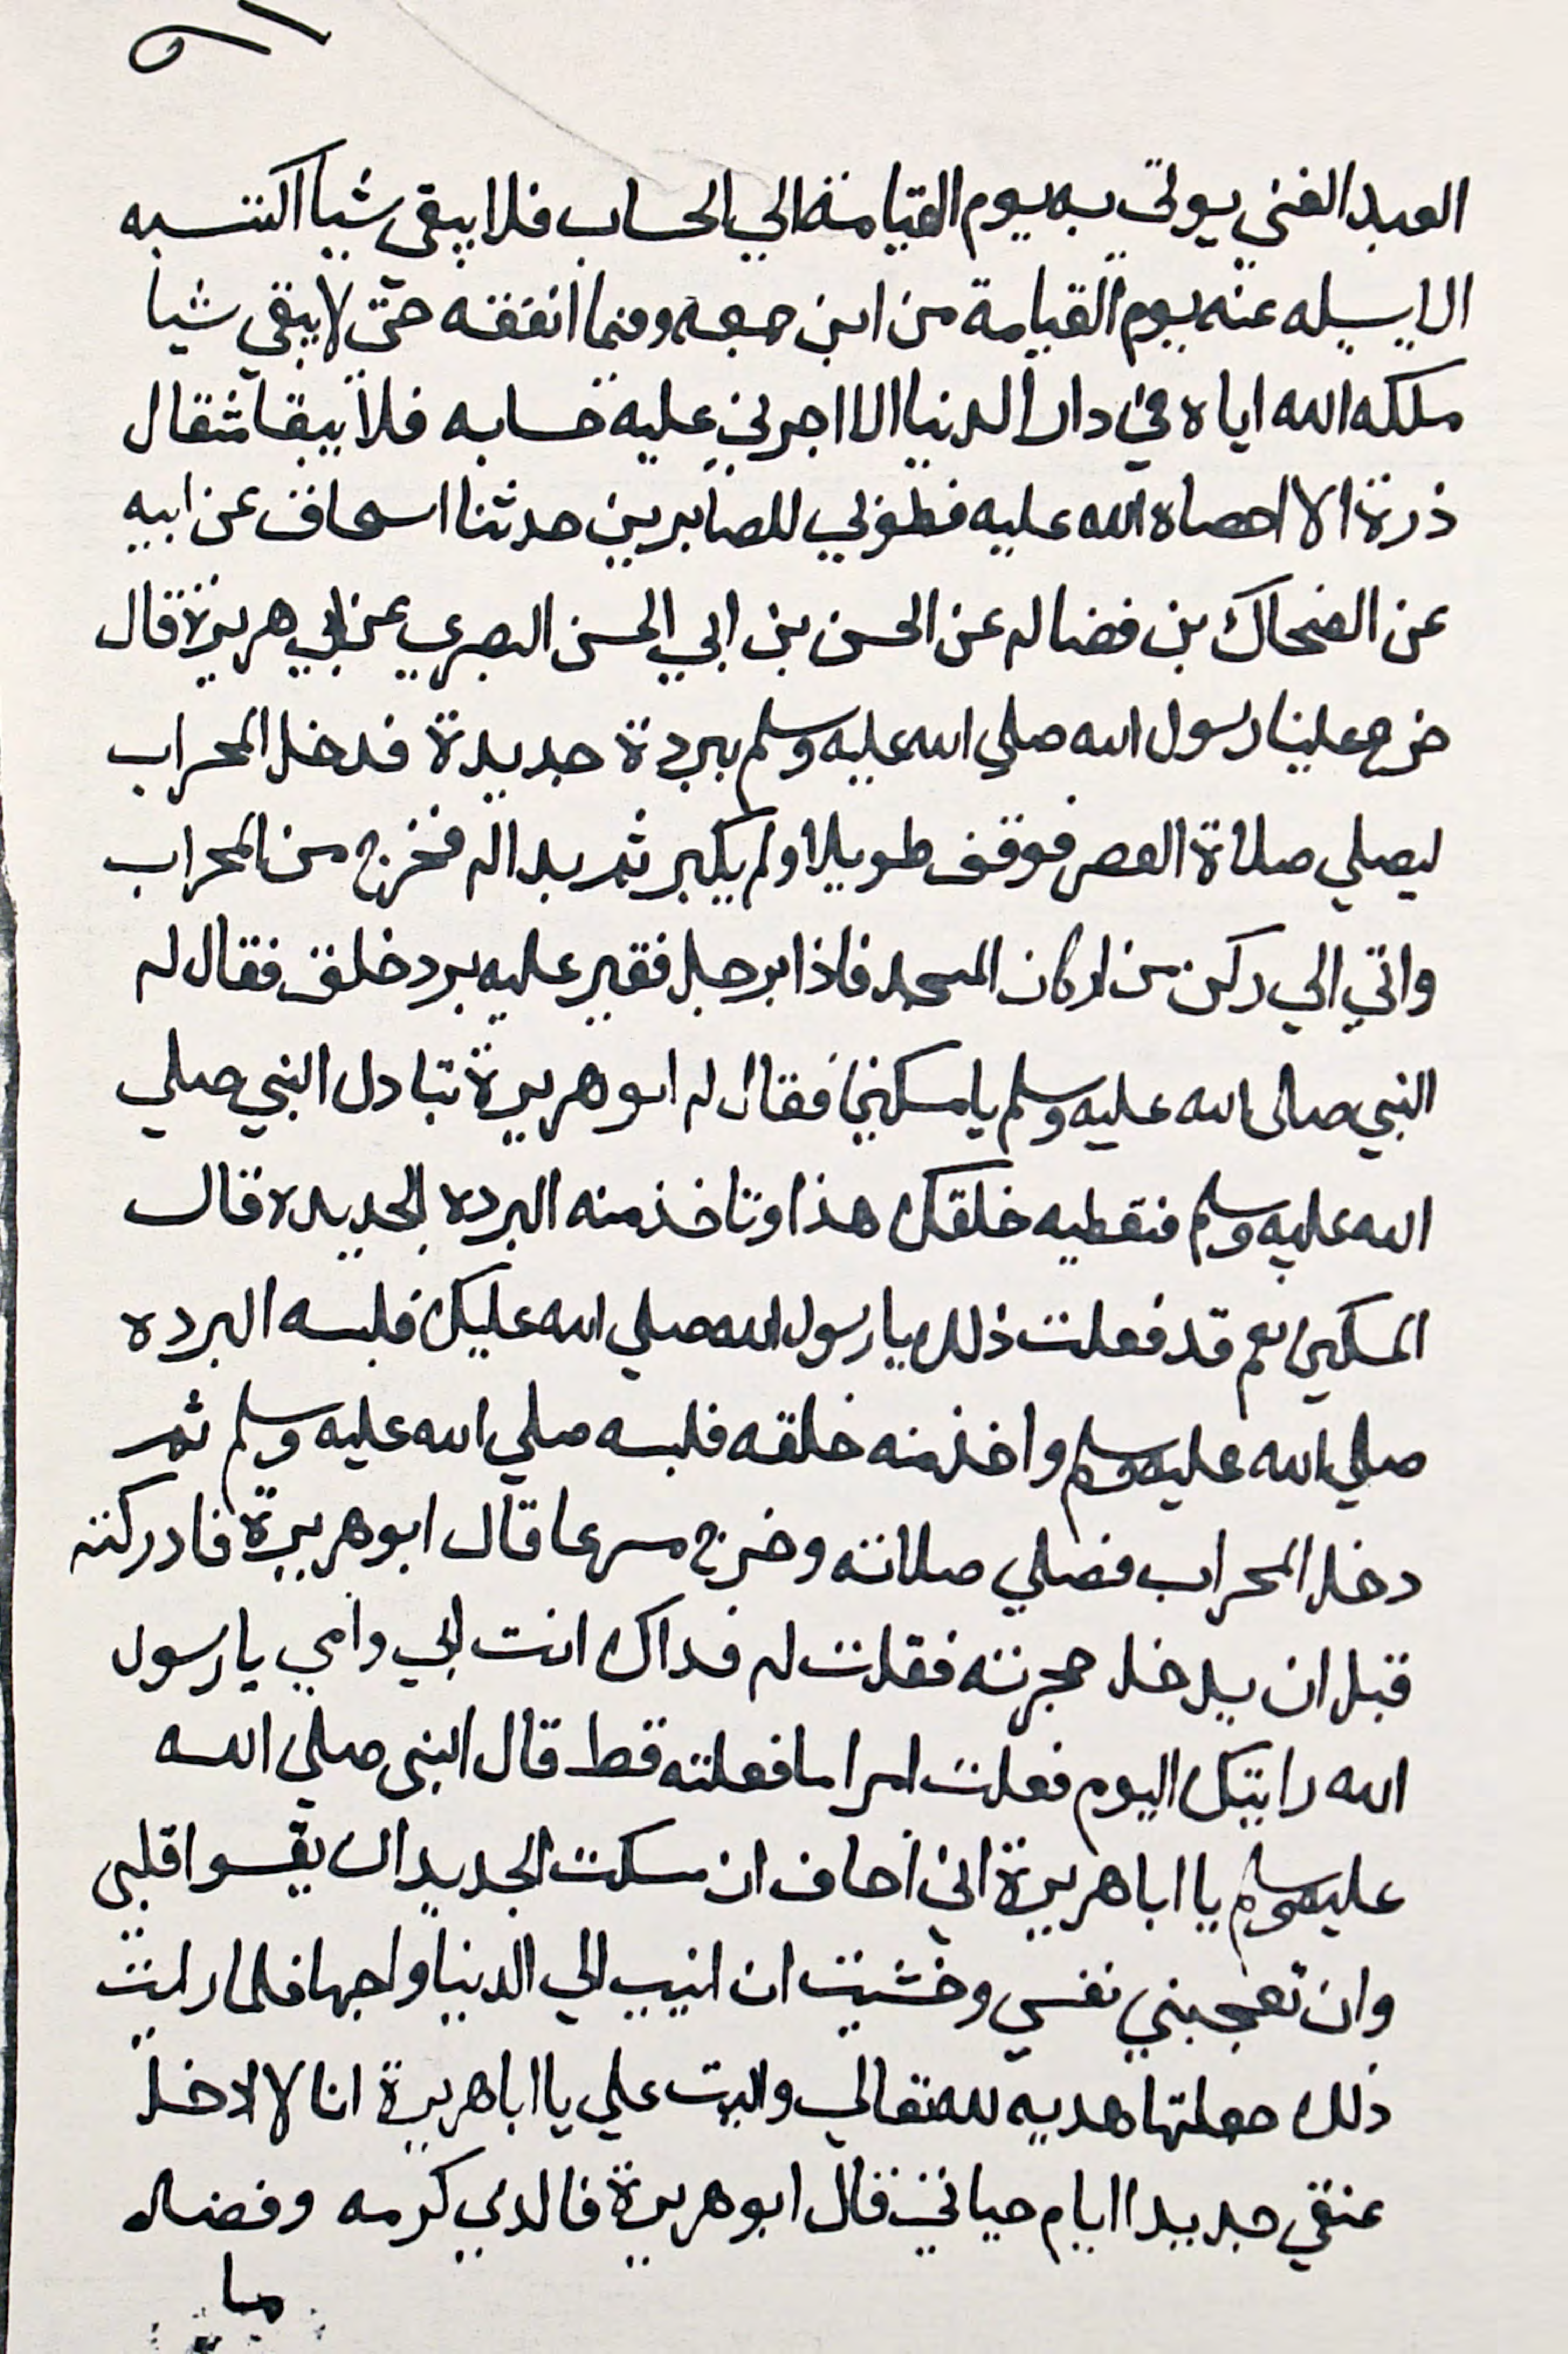 العبد الغني يوتي به يوم القيامة الي الحساب فلا يبقى شيا اكتسبه
الا يسيله عنه يوم القيامة من اين جمعه وفيما انفقه حتي لا يبقي شيا
ملكه الله اياه في دار الدنيا الا اجري عليه حسابه فلا يبقا مثقال
ذرة الا احصاه الله عليه فطوبي للصابرين حدثنا اسحاق عن ابيه
عن الضحاك بن فضاله عن الحسن بن ابي الحسن البصري عن ابي هريرة قال
خرج علينا رسول الله صلي الله عليه وسلم ببردة جديدة فدخل المحراب
ليصلي صلاة العصر فوقف طويلا ولم يكبر ثم بدا له فخرج من المحراب
واتي الي ركن من اركان المسجد فاذا برجل فقير عليه برد خلق فقال له
النبي صلى الله عليه وسلم يا مسكين فقال له ابو هريرة تبادل النبي صلي
الله عليه وسلم فتعطيه خلقك هذا وتاخذ منه البرده الجديده قال
المسكين نعم قد فعلت ذلك يا رسول الله صلي الله عليك فلبسه البرده
صلي الله عليه وسلم واخذ منه خلقه فلبسه صلي الله عليه وسلم ثم
دخل المحراب فصلي صلاته وخرج مسرعا قال ابو هريرة فادركته
قبل ان يدخل حجرته فقلت له فداك انت ابي وامي يا رسول
الله رايتك اليوم فعلت امرا ما فعلته قط قال النبى صلي الله
عليه وسلم يا ابا هريرة اني اخاف ان مسكت الجديد ان يقسوا قلبى
وان تعجبني نفسي وخشيت ان انيب الي الدنيا واحبها فلما رايت
ذلك جعلتها هديه لله تعالي واليت علي يا ابا هريرة انا لا لا دخل
عنقي جديدا ايام حياتي قال ابو هريرة فالذي كرمه وفضله